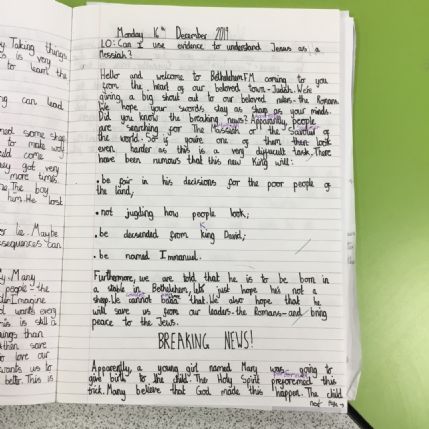 Taking things
is very
to learn the
can lead
some sheep
to make wolf
come
got very
more times.
The boy
him. He lost
lie. Maybe
can
Many
people - the
Imagine
wants every
is still a
than
save
to love our
wants us to
better. This is
Monday 16th December 2019
LO: Can I use evidence to understand Jesus as a
Messiah?
Hello and welcome to Bethelehem FM coming to you
from the heart of our beloved town - Judah. We're
giving a big shout out to our beloved rulers - the Romans.
We hope your swords stay as sharp as your minds.
Did you know the breaking news? Apparently people
are searching for The Massiah or the Saviour of
the world. So if you're one of them then look
even harder as this is a very diffucult task. There
have been rumours that this new King will:
• be fair in his decisions for the poor people of
the land;
• not judging how people look;
• be decsended from King David;
• be named Immanuel.
Furthermore, we are told that he is to be born in
a stable in Bethelehem, We just hope he's not a
sheep. We cannot that. We also hope that he
will save us from our leaders - the Romans - and bring
peace to the Jews.
BREAKING NEWS!
Apparently, a young girl named Mary was going to
give birth to the child. The Holy Spirit preforemed this
trick. Many believe that God made this happen. The child